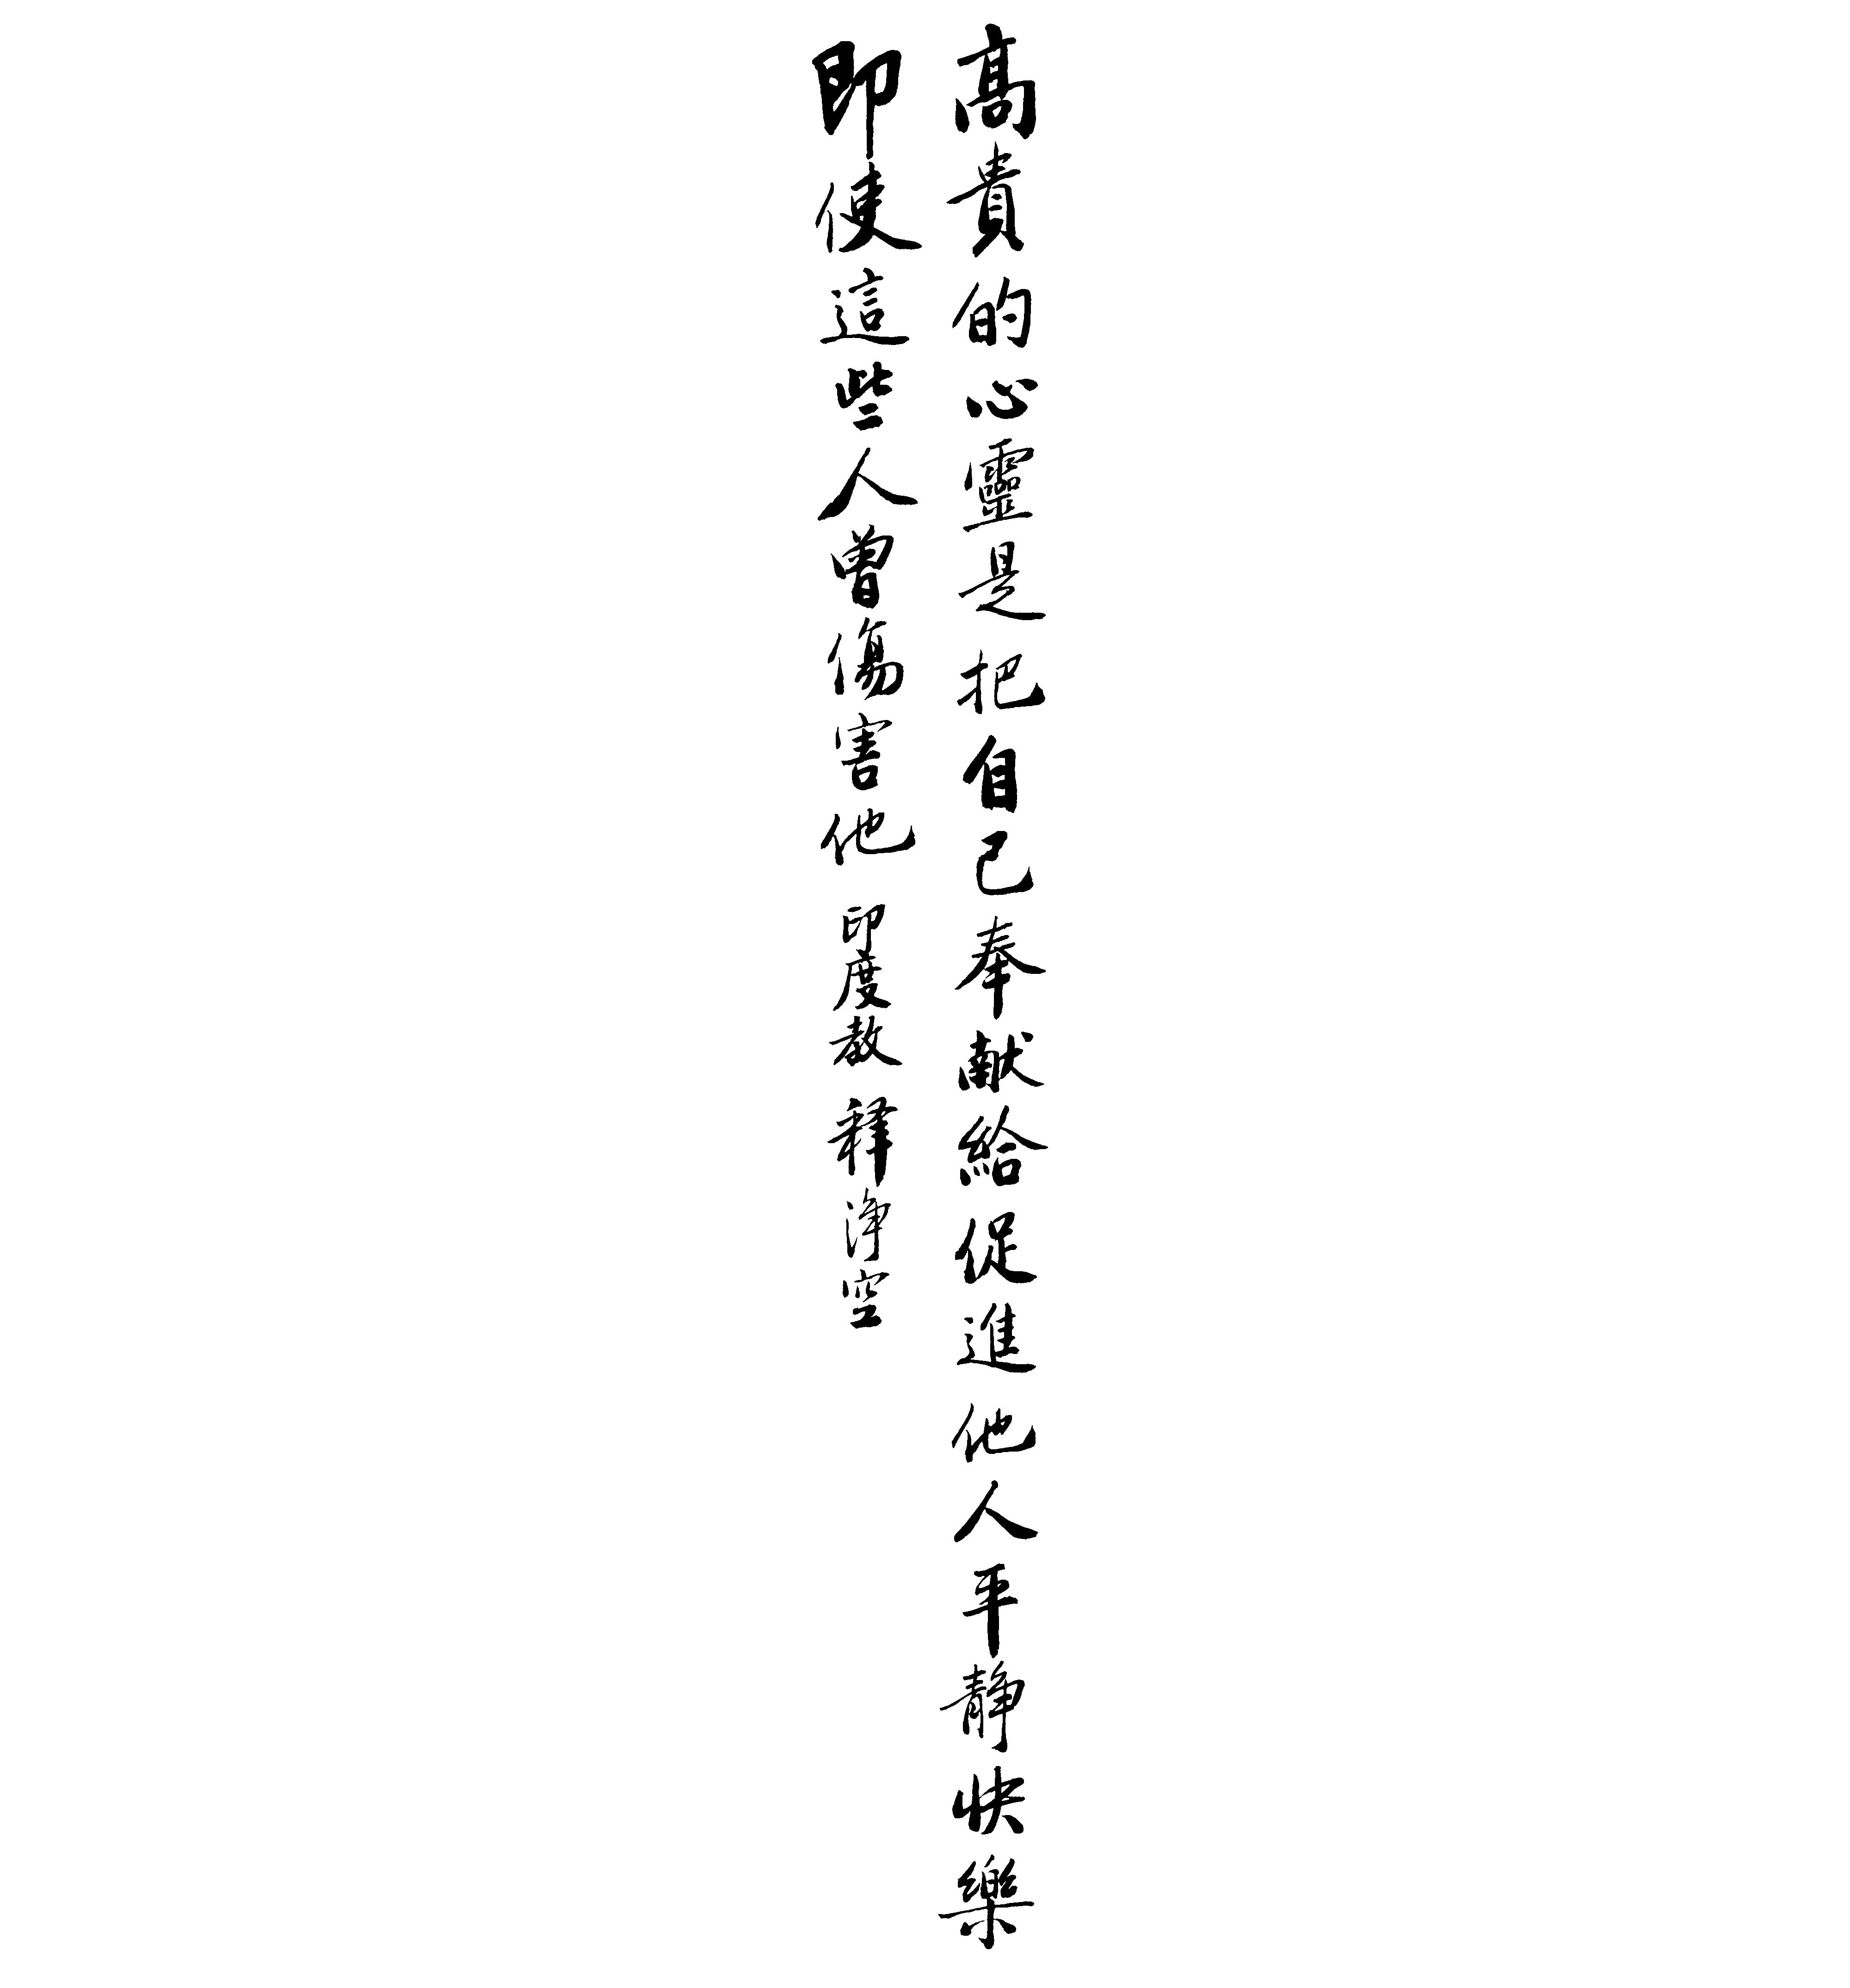 高貴的心靈是把自己奉献給促進他人平静快樂
即使這些人曾傷害他 印度教 释浄空